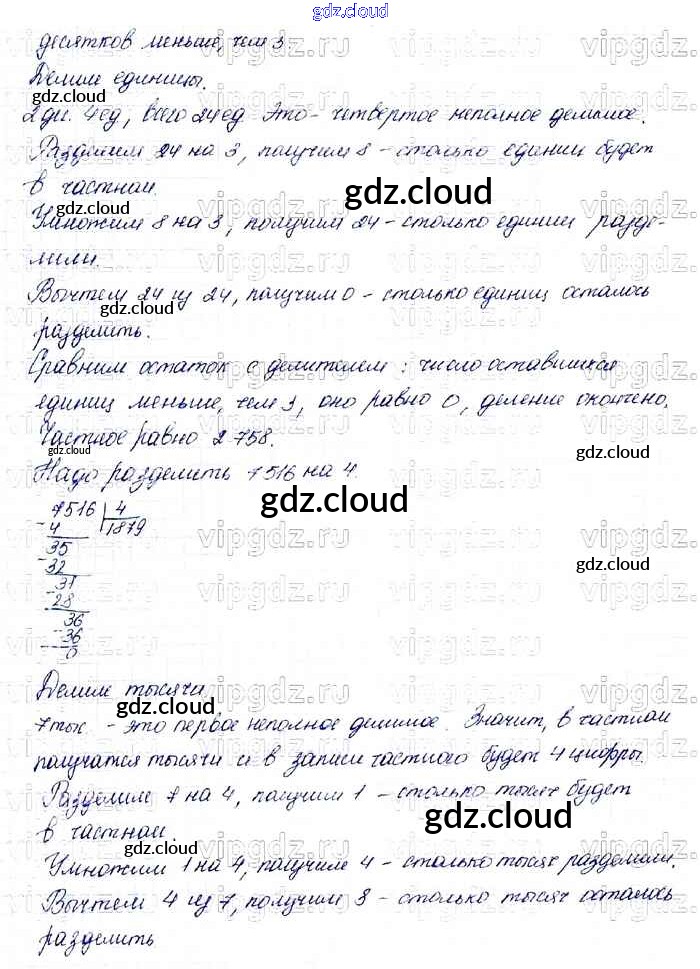 gdz.cloud
десятков меньше, чем 3.
Делим единицы.
2 дес. 4 ед, всего 24 ед Это - четвертое неполное делимое.
Разделим 24 на 3, получим 8 - столько единиц будет
в частном.
Умножим 8 на 3, получим 24 - столько единиц разде-
лили.
Вычтем 24 из 24, получим 0 - столько единиц осталось
разделить.
Сравним остаток с делителем: число оставшихся
единиц меньше, чем 3, оно равно 0, деление окончено.
Частное равно 2 758.
Надо разделить 7516 на 4.
7516 | 4
- 4 1879
35
- 32
31
- 28
36
- 36
0
Делим тысячи.
7 тыс. - это первое неполное делимое. Значит, в частном
получатся тысячи и в записи частного будет 4 цифры.
Разделим 7 на 4, получим 1 - столько тысяч будет
в частном.
Умножим 1 на 4, получим 4 - столько тысяч разделили.
Вычтем 4 из 7, получим 3 - столько тысяч осталось
разделить